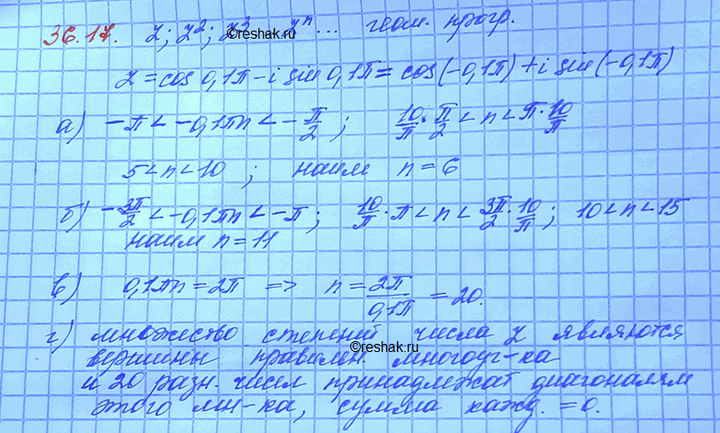 36.17. z; z²; z³ ... zⁿ... геом. прогр.
©reshak.ru
z = cos 0,1π - i sin 0,1π = cos(-0,1π) + i sin(-0,1π)
а) -π < -0,1πn < -π/2 ; 10/π · π/2 < n < π · 10/π
5 < n < 10 ; наим n = 6
б) -3π/2 < -0,1πn < -π ; 10/π · π < n < 3π/2 · 10/π ; 10 < n < 15
наим n = 11
в) 0,1πn = 2π => n = 2π/0,1π = 20.
г) множество степеней числа z являются
©reshak.ru
вершины правильн. многоуг-ка
и 20 разн. чисел принадлежат диагоналям
этого мн-ка, сумма кажд. = 0.